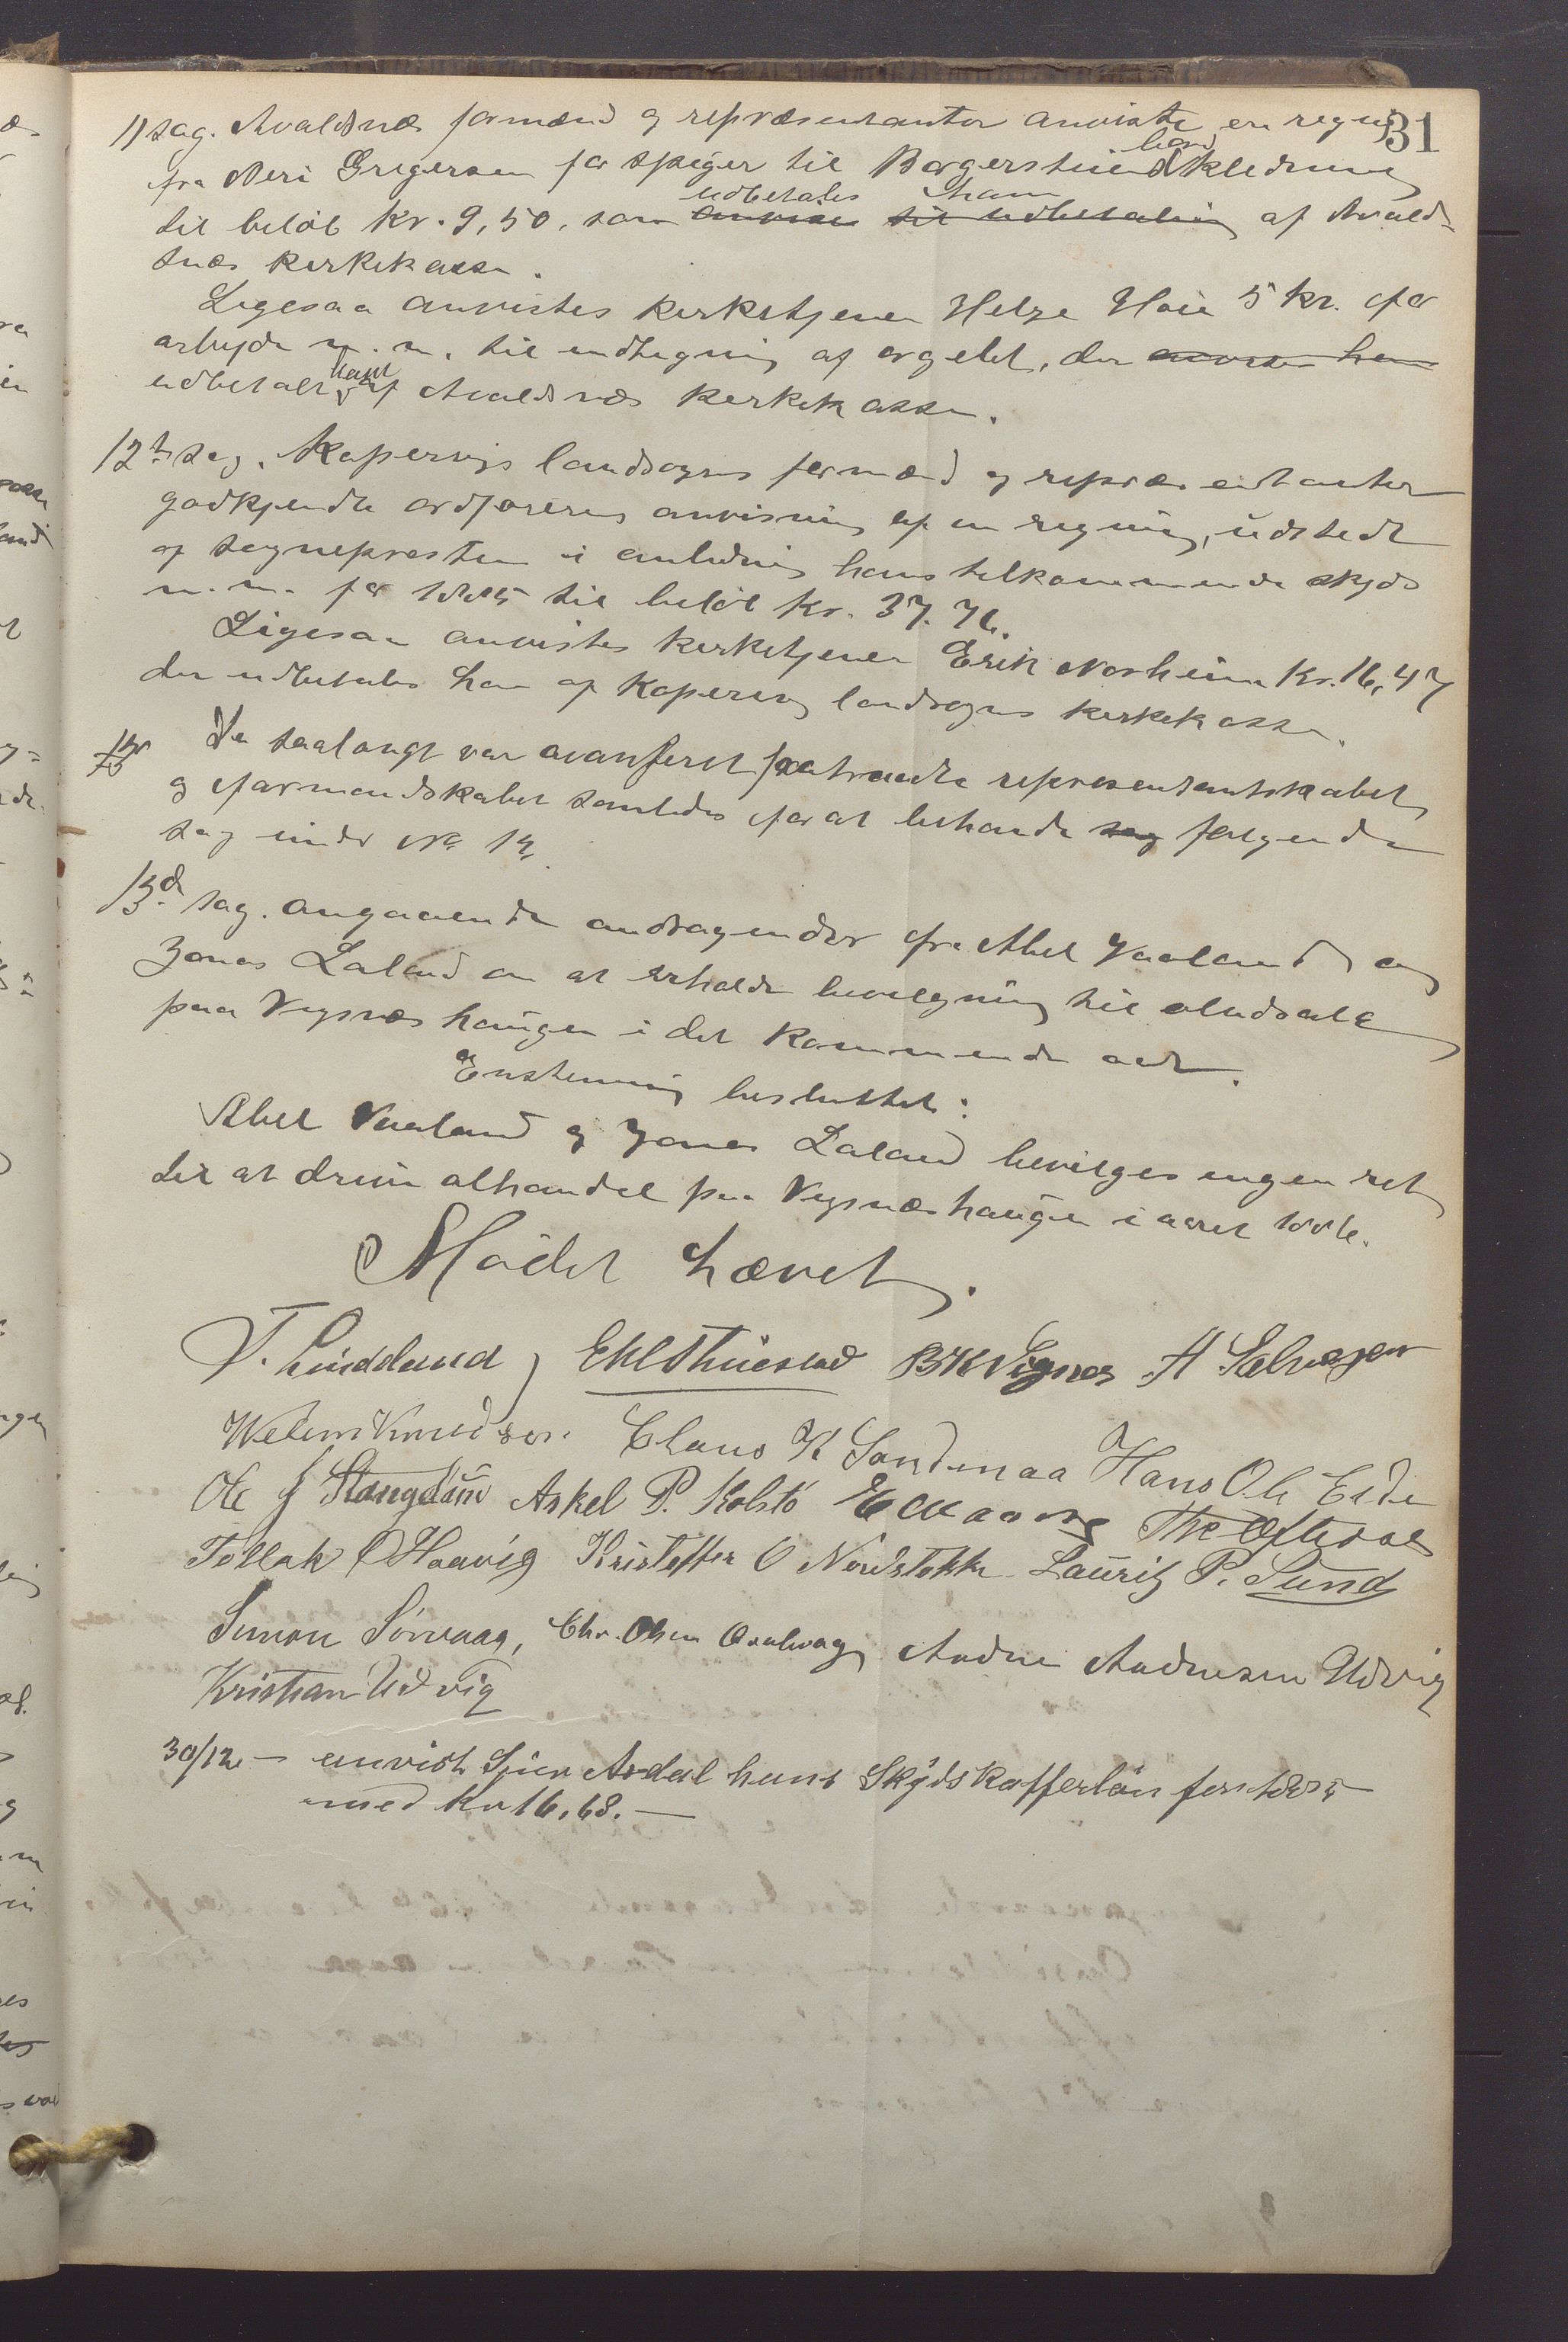 31
11 sag. Avaldsnæs formænd og repræsentanter anviste en regning
fra Neri Gregersen for spiger til Borgerstuens kledning
til beløb Kr. 9,50, som udbetales ham af Avald-
snæs kirkekasse.
Ligesaa anvistes kirketjener Helge Høie 5 kr. for
arbeide m.m. til indtegning af orgelet, der anvistes ham
udbetalt ham af Avaldsnæs kirkekasse.
12te sag. Kopervigs landsogns formænd og repræsentanter
godkjendte ordførerens anvisning af en regning, udstedt
af sognepresten i anledning hans tilkommende skyds
m.m. for 1885 til beløb Kr. 37.76.
Ligesaa anvistes kirketjener Erik Norheim Kr. 16,47
der udbetales ham af Kopervig landsogns kirkekasse.
Da saalangt var avanseret fratraadte repræsentantskabet
og formandskabet samledes for at behandle sag følgende
sag under No 13.
13de sag. angaaende andragender fra Abel Vaaland og
Jonas Laland om at erholde bevilgning til øludsalg
paa Vigsnæs haugen i det kommende aar.
Enstemmig besluttet:
Abel Vaaland og Jonas Laland bevilges ingen ret
til at drive ølhandel paa Vigsnæshaugen i aaret 1886.
Mødet hævet.
T. Linddand, B K Vignes A Salvesen
Willem Knudsen. Claus K Sandmaa Hans Ol. Eide
Ole J Stangeland Askel P. Kolstö
Tollak O Haavig Kristoffer O Nordstokke Lauritz P. Sund
Simon Sørvaag, Chr. Olsen Kvalvaag Andreas Andreasen Udvig
Kristian Udvig
30/12 – anvist Sjur Ardal hans Skydskafferløn for 1885
med Kr 16,68. –